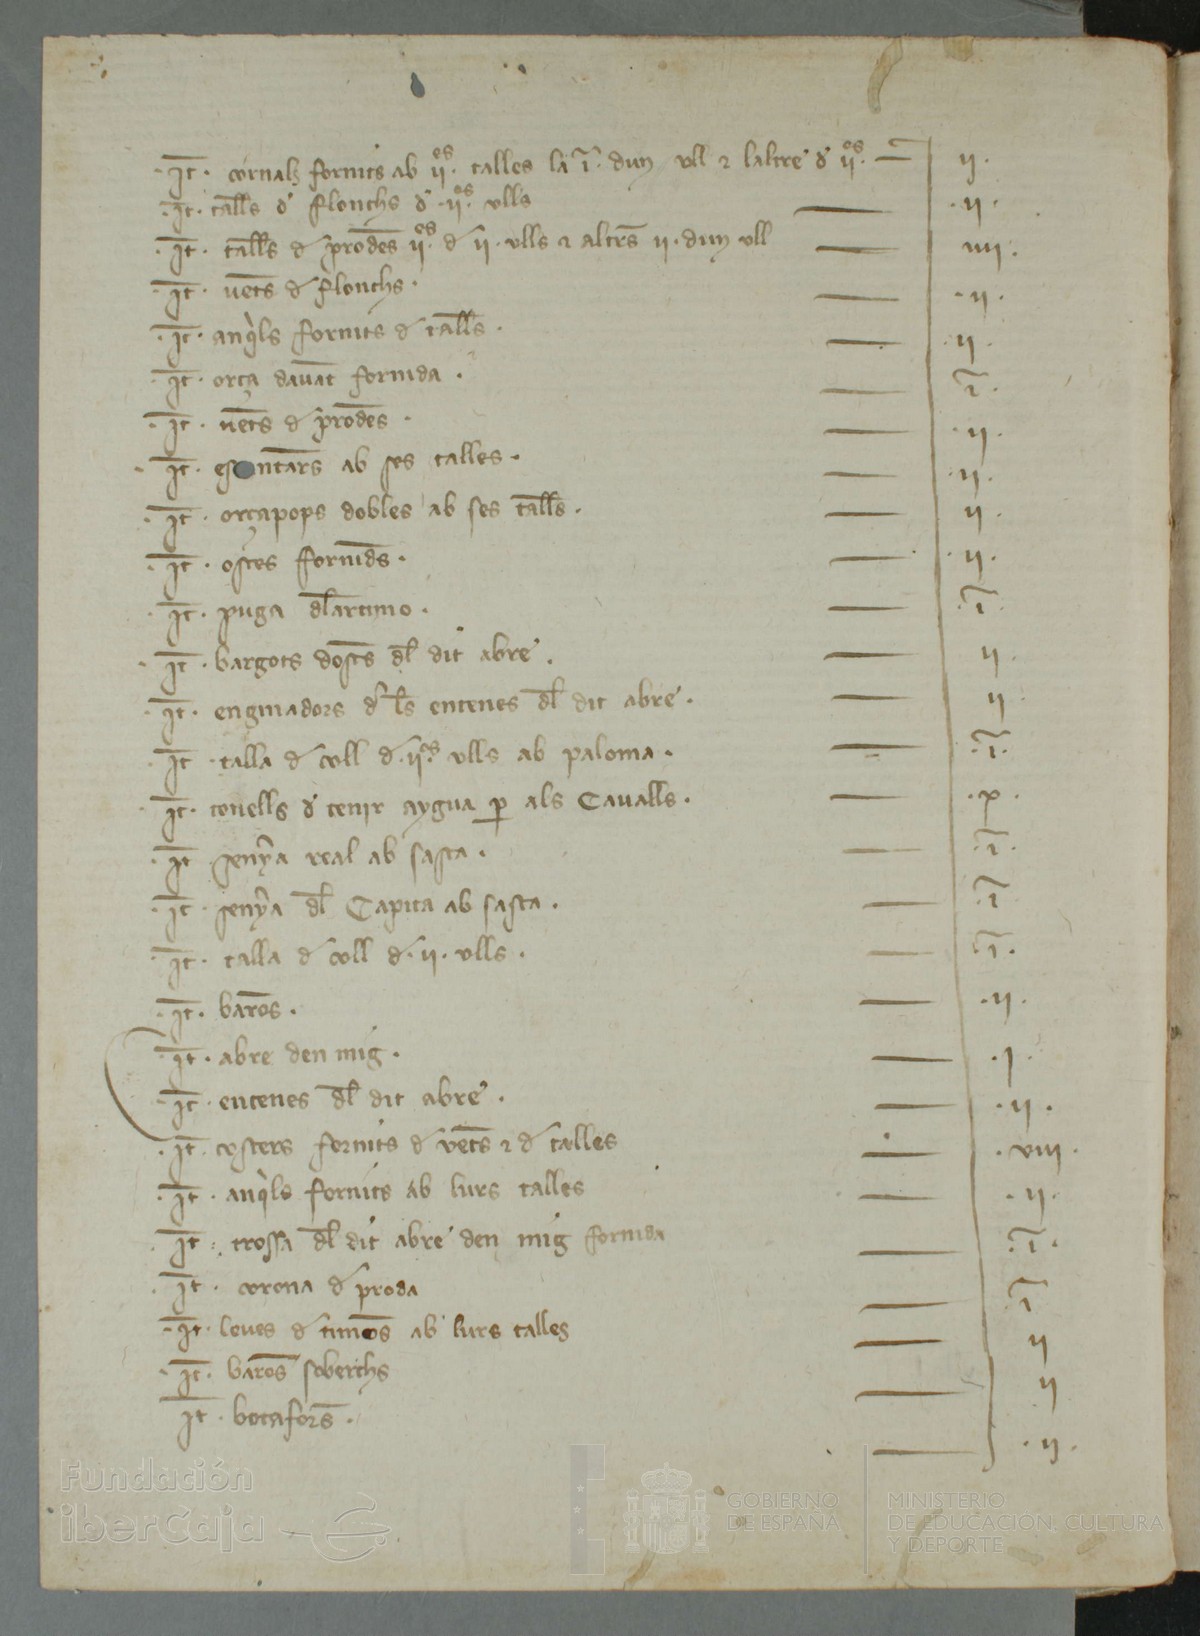 ·It· cornals fornits ab ·ii·es talles la ·i· dun ull & laltre d ·ii·os — ii·
·It· talls d flonchs d ·ii·os ulls — ·ii·
·It· talls d prodes ii·es d ii· ulls & altrs ii· dun ull — iiii·
·It· vets d flonchs· — ·ii·
·It· anqls fornits d talls· — ·ii·
·It· orça davat fornida · — i·
·It· vets d prodes · — ·ii·
·It· ab ses talles· — ·ii·
·It· orçapops dobles ab ses talls· — ii·
·It· ostes fornids· — ·ii·
·It· puga dlartimo· — ·i·
·It· bargots dosts dl dit abre· — ii·
·It· enginadors d ls entenes dl dit abre· — ii
·It· talla d coll d·ii·os ulls ab paloma· — ·i·
·It· covells d tenir aygua p als Cavalls· — ·x·
·It senya real ab sasta· — ·i·
·It· senya dl Capita ab sasta· — ·i
·It· talla d coll d·ii·ulls· — ·i·
·It· baros· — ·ii·
·It· abre den mig· — ·j·
·It· entenes dl dit abre· — ·ii·
·It· costers fornits d vets & d talles — ·viii·
·It· anqls fornits ab lurs talles — ·ii·
·It· trossa dl dit abre den mig fornida — ·i·
·It· corona d proda — i
·It· leves d timos ab lurs talles — ii
·It· baros soberchs — ii
It· botafors· — ·ii·
Fundación
iberCaja
GOBIERNO
DE ESPAÑA
MINISTERIO
DE EDUCACIÓN, CULTURA
Y DEPORTE